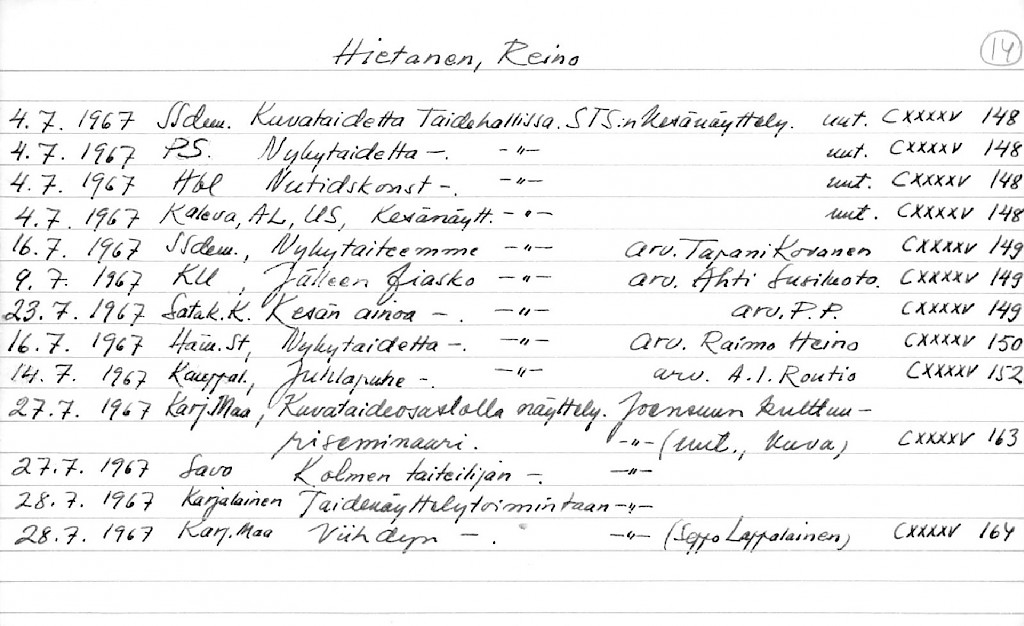 Hietanen, Reino 14
4.7. 1967 SSdem. Kuvataidetta Taidehallissa. STS:n kesänäyttely. uut. CXXXXV 148
4.7. 1967 PS. Nykytaidetta —. —"— uut. CXXXXV 148
4.7. 1967 Hbl Nutidskonst —. —"— uut. CXXXXV 148
4.7. 1967 Kaleva, AL, US, Kesänäytt. —"— uut. CXXXXV 148
16.7. 1967 SSdem., Nykytaiteemme —"— arv. Tapani Kovanen CXXXXV 149
9.7. 1967 KU, Jälleen fiasko —"— arv. Ahti Susiluoto. CXXXXV 149
23.7. 1967 Satak.K. Kesän ainoa —. —"— arv. P.P. CXXXXV 149
16.7. 1967 Häm.St, Nykytaidetta —. —"— arv. Raimo Heino CXXXXV 150
14.7. 1967 Kauppal., Juhlapuhe —. —"— arv. A.I. Routio CXXXXV 152
27.7. 1967 Karj.Maa, Kuvataideosastolla näyttely. Joensuun kulttuu-
riseminaari. —"— (uut., kuva) CXXXXV 163
27.7. 1967 Savo Kolmen taiteilijan —. —"—
28.7. 1967 Karjalainen Taidenäyttelytoimintaan —"—
28.7. 1967 Karj.Maa Viihdyn —. —"— (Seppo Lappalainen) CXXXXV 164